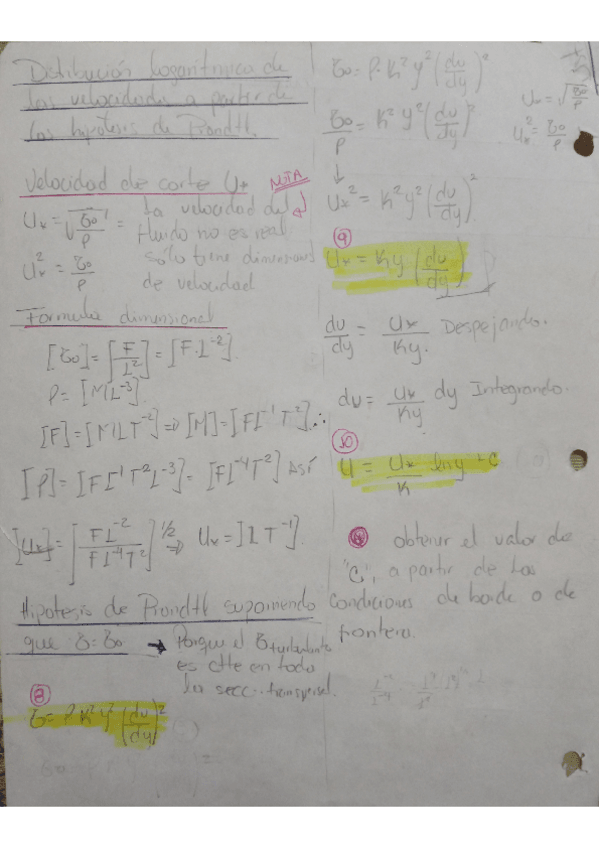 Distribución logaritmica de
las velocidades a partir de
las hipótesis de Prandtl.
Velocidad de corte U* NOTA
U* = √(τo/ρ) = La velocidad del
fluido no es real
U*² = τo/ρ solo tiene dimensiones
de velocidad
Formula dimensional
[τo] = [F/L²] = [F·L⁻²].
ρ = [ML⁻³].
[F] = [MLT⁻²] ⇒ [M] = [FL⁻¹T²] ∴
[ρ] = [FL⁻¹T²L⁻³] = [FL⁻⁴T²] Así
[U*] = [FL⁻²/FL⁻⁴T²]^1/2 ⇒ U* = [LT⁻¹]
Hipotesis de Prandtl suponiendo
que τ = τo → Porque el τ turbulento
es ctte en todo
la secc. transversal.
8
τ = ρ k² y² (dv/dy)²
τo = ρ·k² y² (dv/dy)²
τo/ρ = k² y² (dv/dy)²
U* = √(τo/ρ)
U*² = τo/ρ
↓
U*² = k² y² (dv/dy)²
9
U* = ky (dv/dy)
dv/dy = U*/ky. Despejando.
dv = U*/ky dy Integrando.
10
U = U*/k ln y + C
obtener el valor de
"C", a partir de las
condiciones de borde o de
frontera.